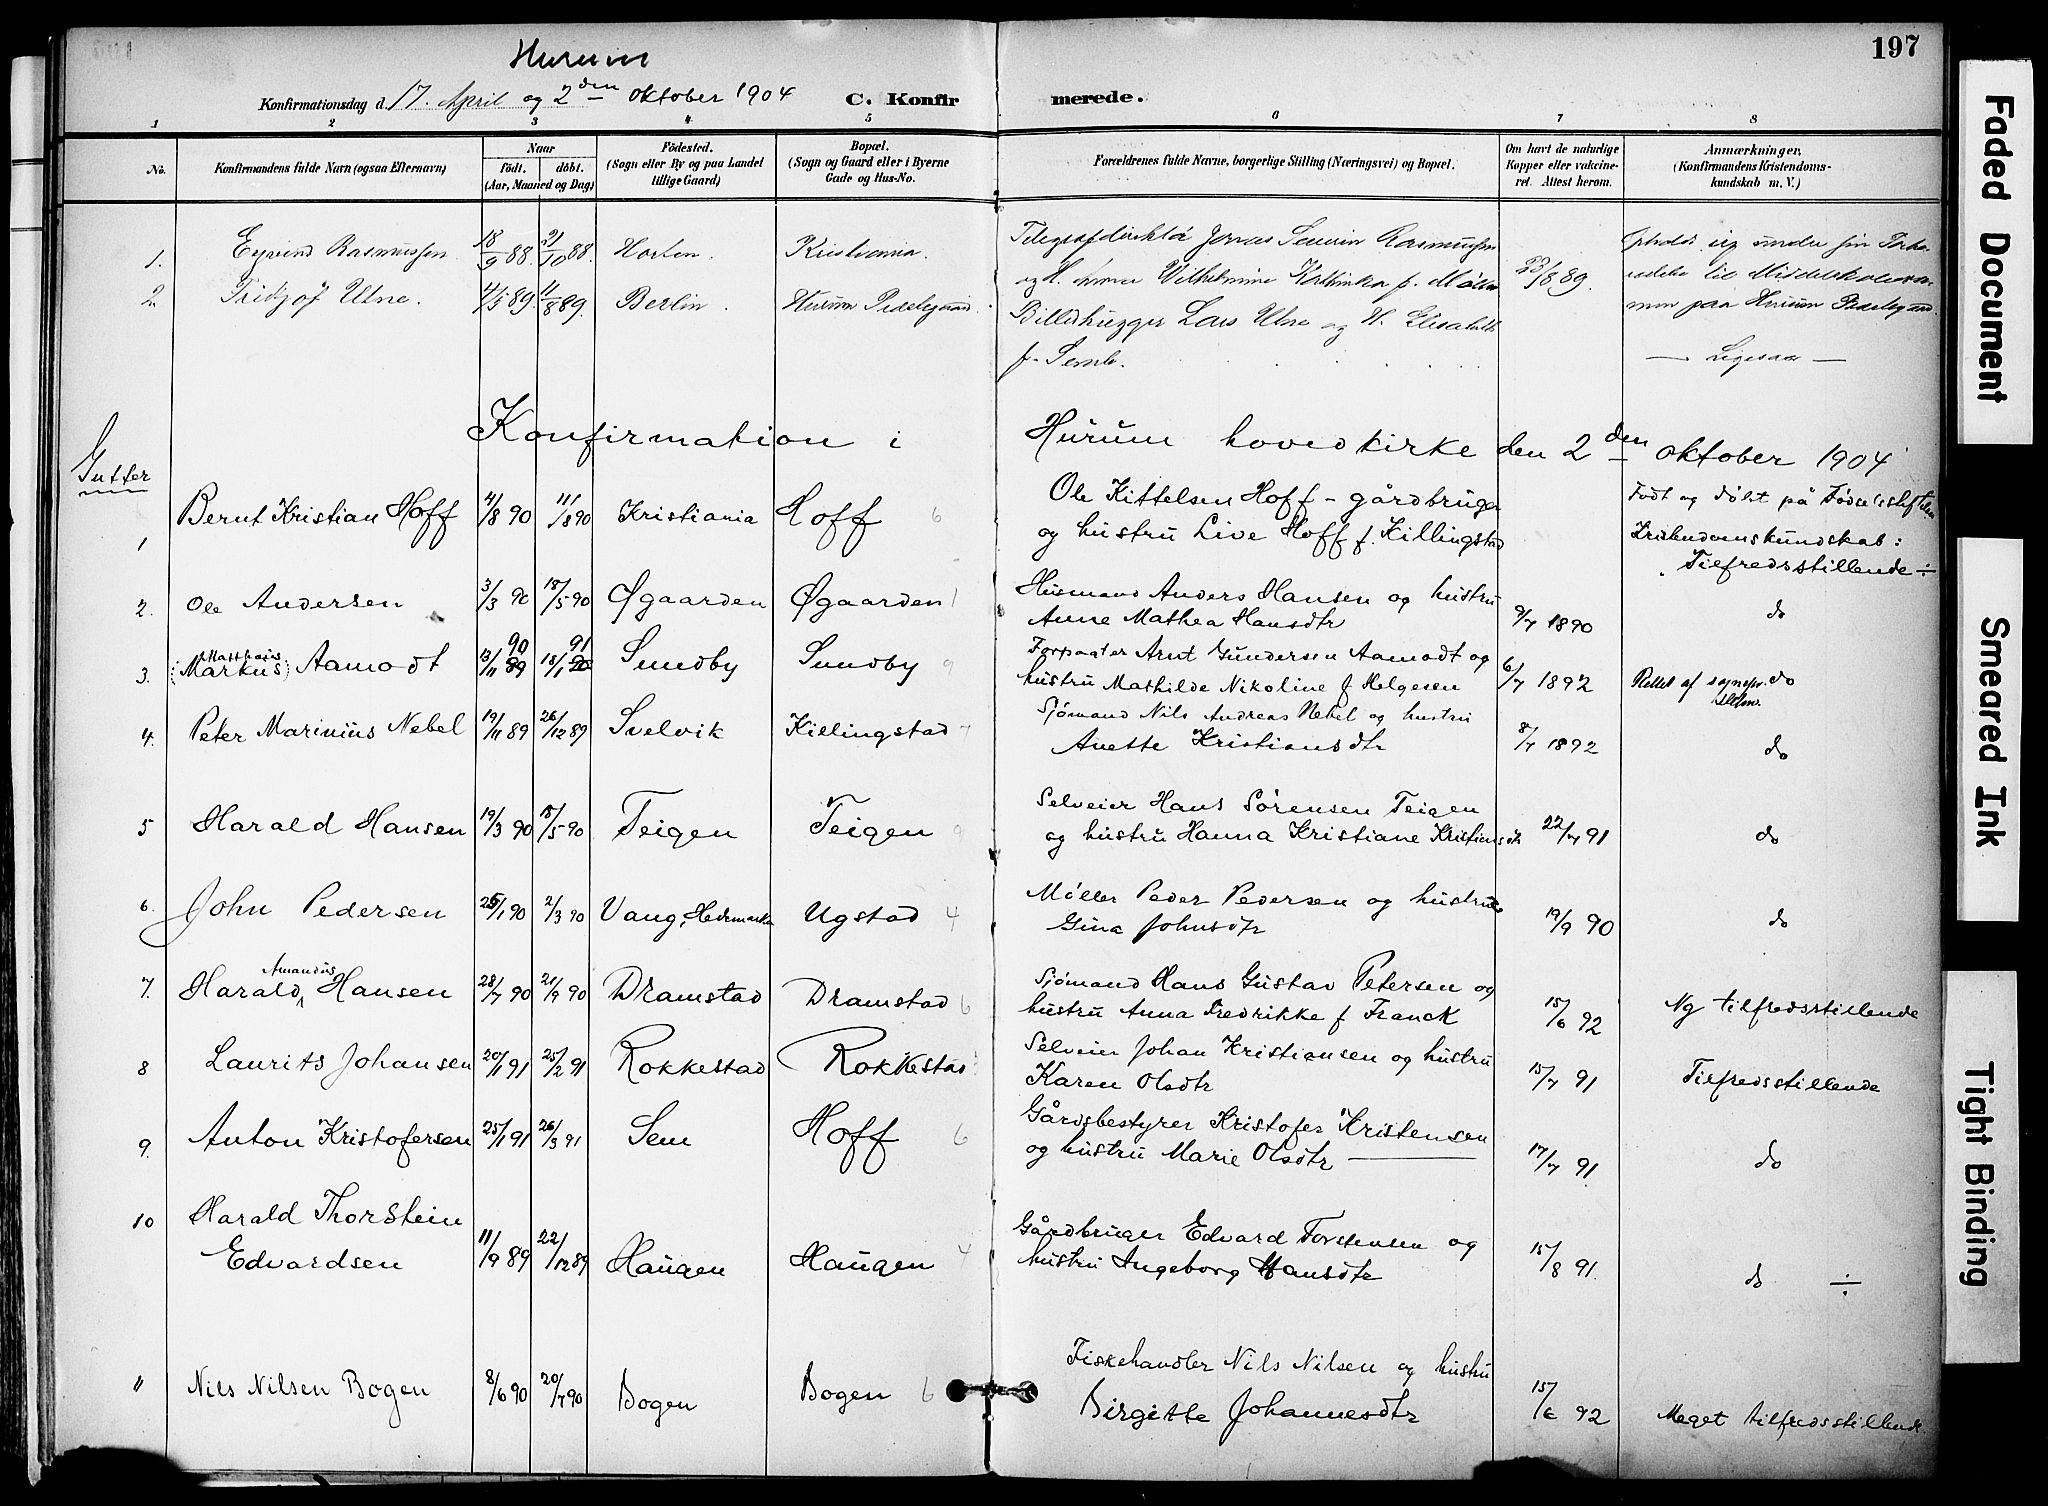 197
Hurum
Konfirmationsdag d. 17. April og 2den Oktober 1904 C. Konfirmerede.
1 2 3 4 5 6 7 8
No. Konfirmandens fulde Navn (ogsaa Efternavn) Naar födt. döbt. (Aar, Maaned og Dag) Födested. (Sogn eller By og paa Landet tillige Gaard) Bopæl. (Sogn og Gaard eller i Byerne Gade og Hus-No. Forældrenes fulde Navne, borgerlige Stilling (Næringsvei) og Bopæl. Om havt de naturlige Kopper eller vakcineret. Attest herom. Anmærkninger, (Konfirmandens Kristendomskundskab m. V.)
1. Eyvind Rasmussen 18/9 88 21/10 88. Horten. Kristiania. Telegrafdirektör Jonas Severin Rasmussen
og H. Wilhelmine Kathinka f. 23/8 89. Ophold sig under sin
2. Fridtjof Utne. 4/5 89. 11/8 89. Berlin. Hurum Prestegaard.
Billedhugger Lars Utne og H. Elisabeth
f. Semb. — Ligesaa —
paa Hurum Prestegaard.
Konfirmation i Hurum hovedkirke den 2den Oktober 1904
Gutter
1 Bernt Kristian Hoff 4/8 90 11/8 90 Kristiania Hoff 6 Ole Kittelsen Hoff - gårdbruger
og hustru Live Hoff f. Killingstad
Født og døbt på Fødselsstiftelsen
Kristendomskundskab:
Tilfredsstillende ÷
2. Ole Andersen 3/3 90 18/5 90 Øgaarden Øgaarden 1 Husmand Anders Hansen og hustru
Anne Mathea Hansdtr 9/7 1890 do
3. Matthæus (Markus) Aamodt 13/11 90 89 18/1 91 90 Sundby Sundby 9 Forpagter Arnt Gundersen Aamodt og
hustru Mathilde Nikoline f Helgesen 6/7 1892 Rettet af sognepr. do
4. Peter Marinius Nebel 19/11 89 26/12 89 Svelvik Killingstad 7 Sjømand Nils Andreas Nebel og hustru
Anette Kristiansdtr 8/7 1892 do
5 Harald Hansen 19/3 90 18/5 90 Teigen Teigen 9 Selveier Hans Sørensen Teigen
og hustru Hanna Kristiane Kristiansdtr 22/7 91 do
6. John Pedersen 25/1 90 2/3 90 Vang, Hedemarken Ugstad 4 Møller Peder Pedersen og hustru
Gina Johnsdtr 19/9 90 do
7. Harald Amandus Hansen 28/7 90 21/9 90 Dramstad Dramstad 6 Sjømand Hans Gustav Petersen og
hustru Anna Fredrikke f Franck 15/6 92 Ng tilfredsstillende
8 Laurits Johansen 20/1 91 25/2 91 Rokkestad Rokkestad Selveier Johan Kristiansen og hustru
Karen Olsdtr 15/7 91 Tilfredsstillende
9. Anton Kristofersen 25/1 91 26/3 91 Sem Hoff 6 Gårdsbestyrer Kristofer Kristensen
og hustru Marie Olsdtr 17/7 91 do
10 Harald Thorstein
Edvardsen 11/9 89 22/12 89 Haugen Haugen 4 Gårdbruger Edvard Torstensen og
hustru Ingeborg Hansdtr 15/8 91. do ÷
11 Nils Nilsen Bogen 8/6 90 20/7 90 Bogen Bogen 6 Fiskehandler Nils Nilsen og hustru
Birgitte Johannesdtr 15/6 92 Meget tilfredsstillende
Faded Document
Smeared Ink
Tight Binding